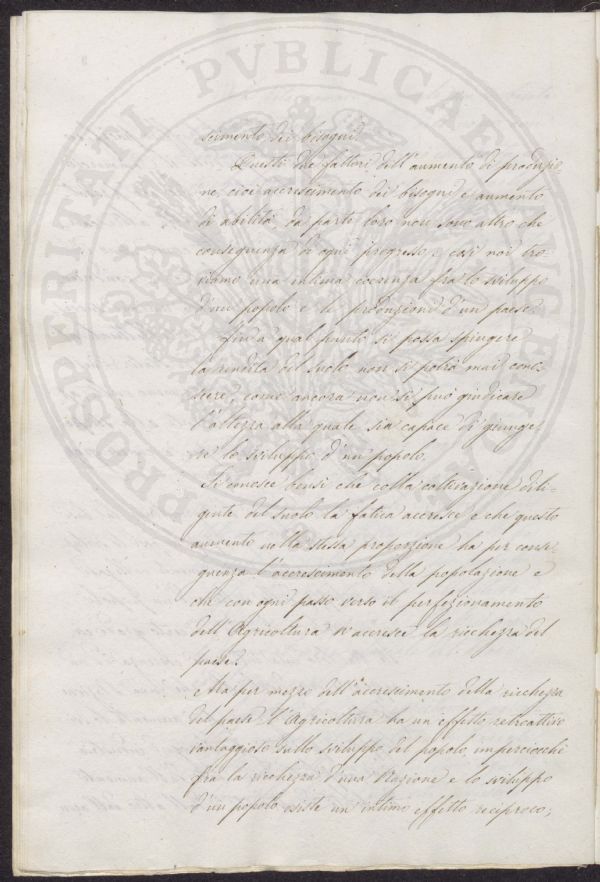 PROSPERITATI PVBLICAE
scimento dei bisogni.
Questi due fattori dell'aumento di produzio
ne, cioè accrescimento dei bisogni e aumento
di abilità da parte loro non sono altro che
conseguenza di ogni progresso, e così noi tro-
viamo una intima coerenza fra lo sviluppo
d'un popolo e le produzioni d'un paese.
Fin a qual punto si possa spingere
la rendita del suolo non si potrà mai cono-
scere, come ancora non si può giudicare
l'altezza alla quale sia capace di giunge-
re lo sviluppo d'un popolo.
Si conosce bensì che colla coltivazione dili-
gente del suolo la fatica accresce e che questo
aumento nella stessa proporzione ha per conse-
guenza l'accrescimento della popolazione e
che con ogni passo verso il perfezionamento
dell'Agricoltura si accresce la ricchezza del
paese.
Ma per mezzo dell'accrescimento della ricchezza
del paese l'Agricoltura ha un effetto retroattivo
vantaggioso sullo sviluppo del popolo, imperciocchè
fra la ricchezza d'una Nazione e lo sviluppo
d'un popolo esiste un intimo effetto reciproco;